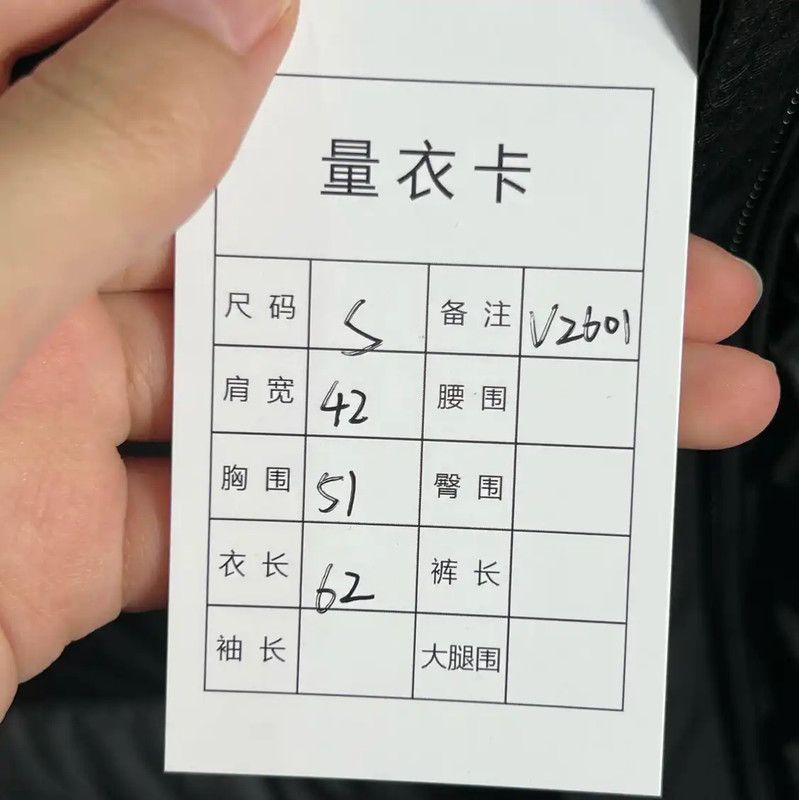 量衣卡
尺码 S 备注 V2601
肩宽 42 腰围
胸围 51 臀围
衣长 62 裤长
袖长 大腿围